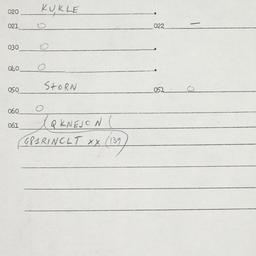 020 KUKLE
021 O 022 —
030 O
040 O
050 STORN 051 O
060 O
061 (QKNEJCN(
GP1RINCLT xx (139)